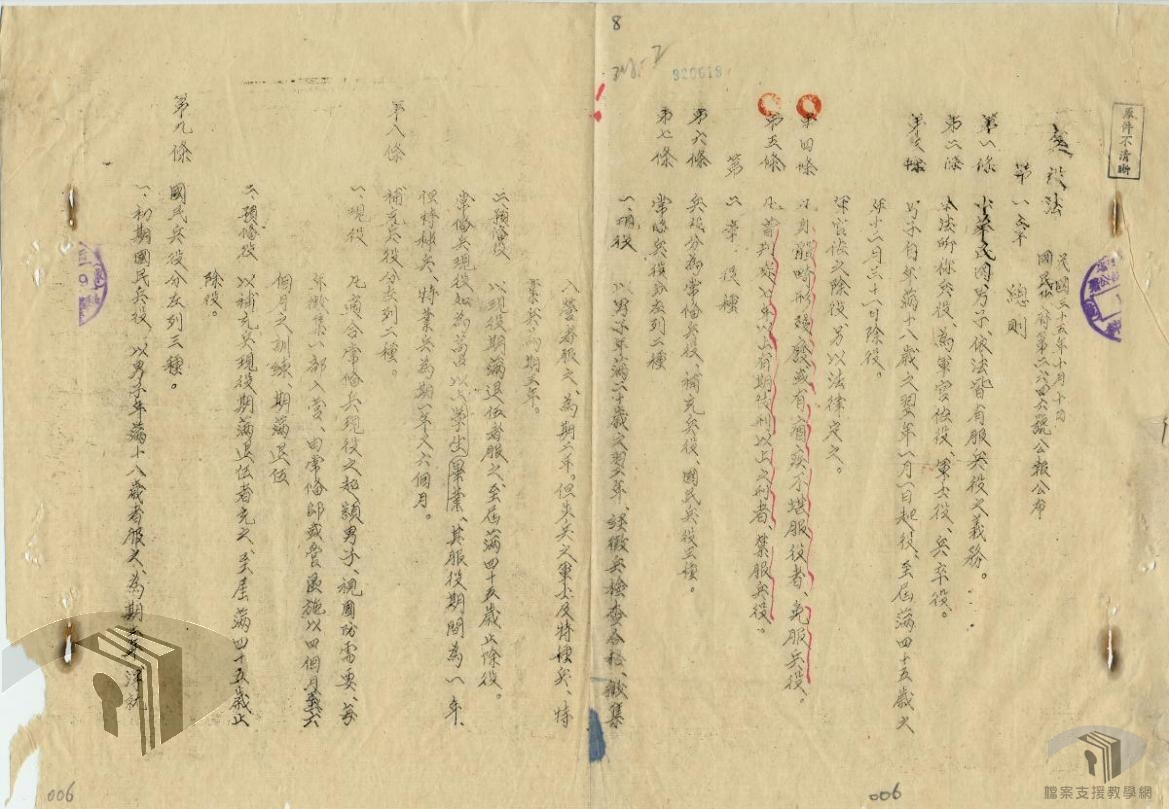 8
920619
原件不清晰
兵役法
民國三十五年十月十日
國民政府第二六四六號公報公布
第一章 總則
第一條 中華民國男子、依法皆有服兵役之義務。
第二條 本法所称兵役、為軍官佐役、軍士役、兵卒役。
第三條 男子自年滿十八歲之翌年一月一日起役、至屆滿四十五歲之
年十二月三十一日除役。
軍官佐之除役另以法律定之。
第四條 凡身體畸形殘廢或有痼疾不堪服役者、免服兵役。
第五條 凡曾判處七年以上有期徒刑以上之刑者、禁服兵役。
第二章 役種
第六條 兵役分為常備兵役、補充兵役、國民兵役三種。
第七條 常備兵役分左列二種
一、現役 以男子年滿二十歲之翌年、經徵兵檢查合格、徵集
入營者服之、為期二年。但步兵之軍士及特種兵、特
業兵為期三年。
二、預備役 以現役期滿退伍者服之、至屆滿四十五歲止除役。
常備兵現役如為高中以上學生畢業、其服役期間為一年、
但特種兵、特業兵為期一年又六個月。
第八條 補充兵役分左列二種。
一、現役 凡適合常備兵現役之超額男子、視國防需要、每
年徵集一部入營、由常備師或管區施以四個月至六
個月之訓練、期滿退伍
二、預備役 以補充兵現役期滿退伍者充之、至屆滿四十五歲止
除役。
第九條 國民兵役分左列三種。
一、初期國民兵役、以男子年滿十八歲者服之、為期二年
006
006
檔案支援教學網